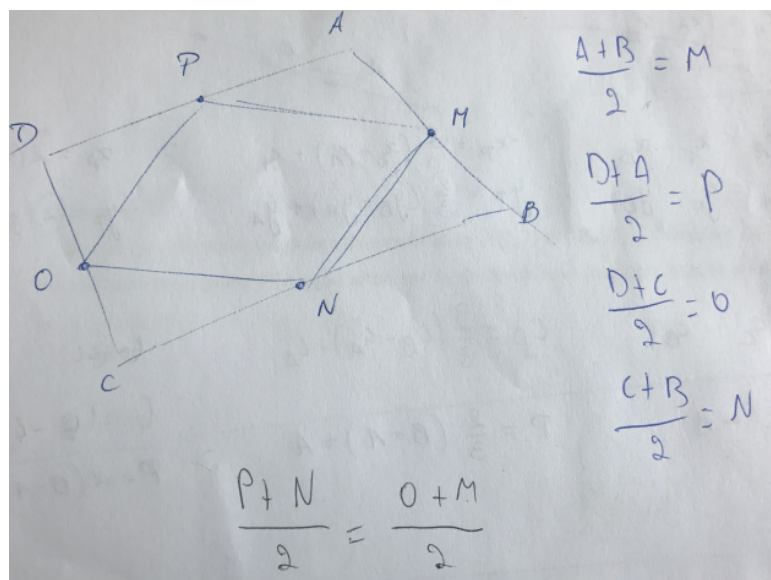 A
P
D
M
B
O
N
C
A+B
2 = M
D+A
2 = P
D+C
2 = O
C+B
2 = N
P+N
2 = O+M
2